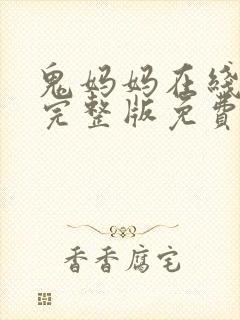 鬼妈妈在线
完整版免費
香香腐宅